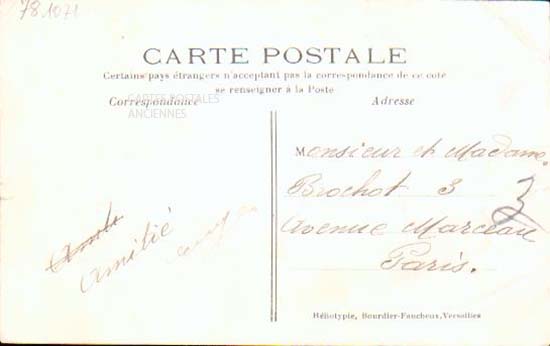 78.1071
CARTE POSTALE
Certains pays étrangers n'acceptant pas la correspondance de ce côté
se renseigner à la Poste
Correspondance
Adresse
CARTES POSTALES
ANCIENNES
Amitié
Monsieur et Madame
Brochot 3
3
Avenue Marceau
Paris.
Héliotypie, Bourdier-Faucheux, Versailles